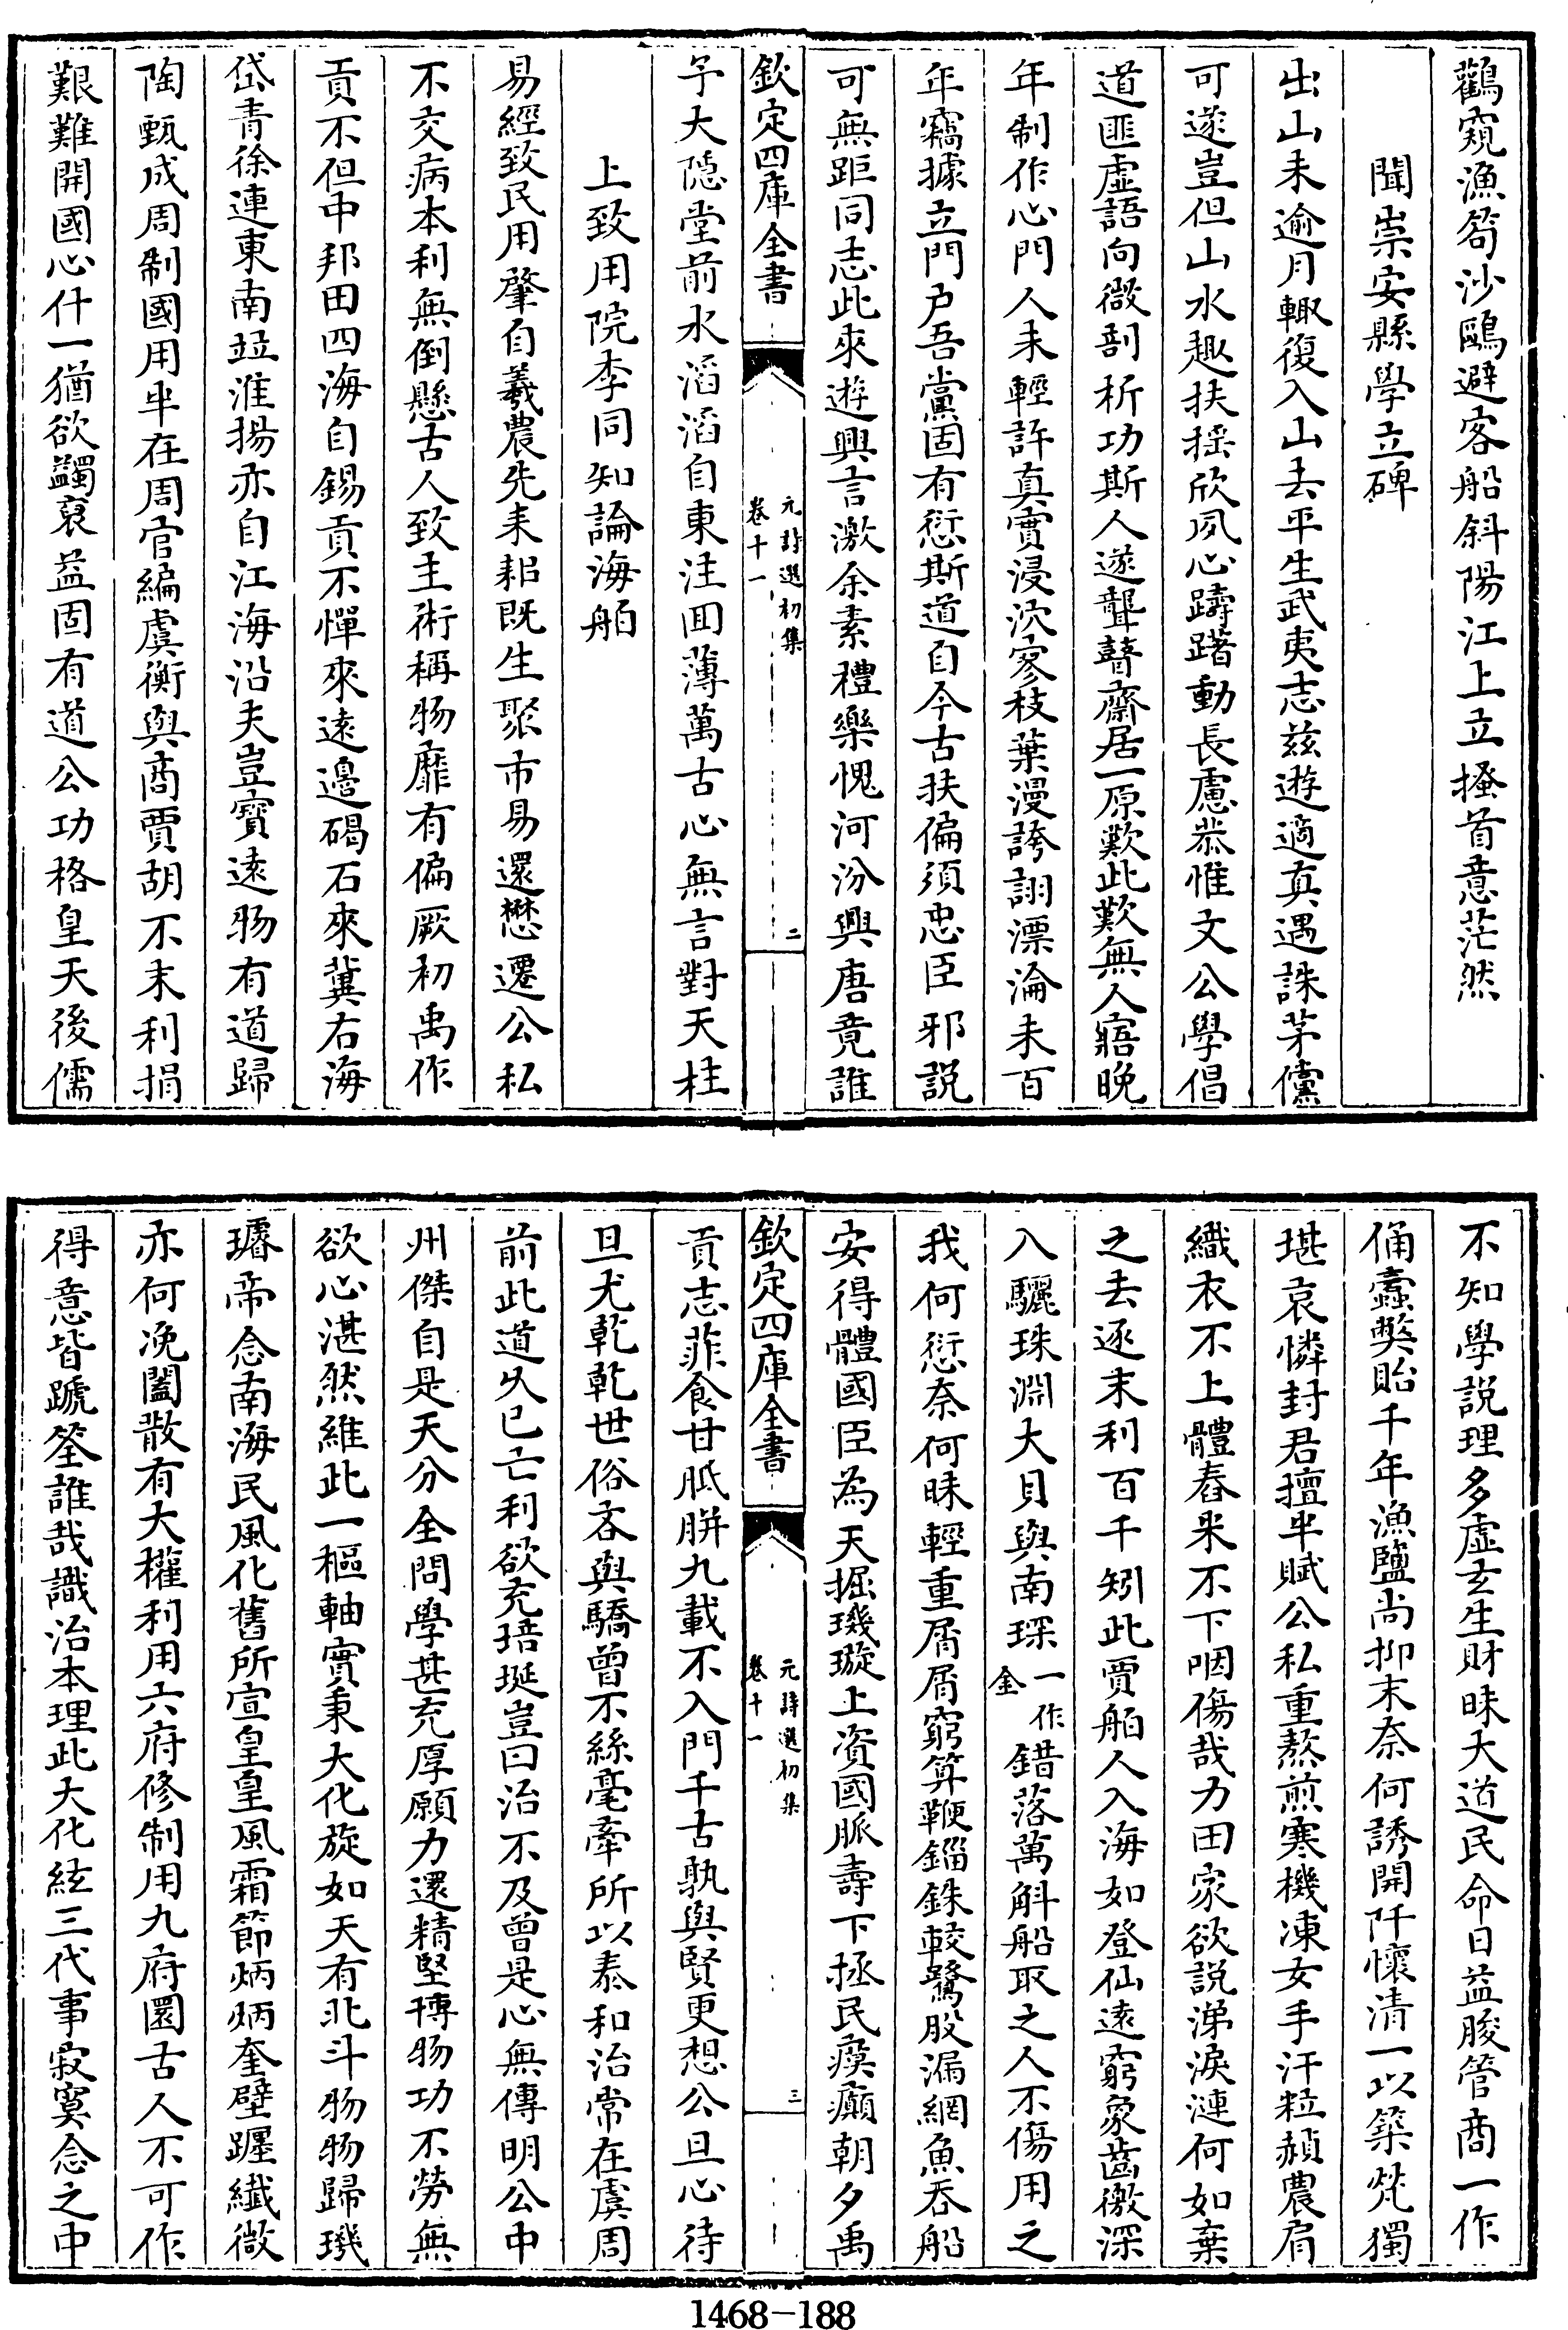 鸛窺漁笱沙鷗避客船斜陽江上立搔首意茫然
聞崇安縣學立碑
出山未逾月輙復入山去平生武夷志兹遊適真遇誅茅儻
可遂豈但山水趣扶揺欣夙心躊躇動長慮恭惟文公學倡
道匪虚語向微剖析功斯人遂聾瞽齋居一原歎此歎無人寤晚
年制作心門人未輕許真實浸泬寥枝葉漫誇詡漂淪未百
年竊據立門户吾黨固有愆斯道自今古扶偏須忠臣邪説
可無距同志此來遊興言激余素禮樂愧河汾興唐竟誰
欽定四庫全書
元詩選初集
卷十一
二
予大隠堂前水滔滔自東注囬薄萬古心無言對天柱
上致用院李同知論海舶
易經致民用肇自羲農先耒耜既生聚市易還懋遷公私
不交病本利無倒懸古人致主術稱物靡有偏厥初禹作
貢不但中邦田四海自錫貢不憚來逺邊碣石來冀右海
岱青徐連東南竝淮揚亦自江海沿夫豈寳逺物有道歸
陶甄成周制國用半在周官編虞衡與商賈胡不末利捐
艱難開國心什一猶欲蠲裒益固有道公功格皇天後儒
不知學説理多虚玄生財昧大道民命日益朘管商一作
俑蠧弊貽千年漁鹽尚抑末奈何誘開阡懷清一以築煢獨
堪哀憐封君擅半賦公私重熬煎寒機凍女手汗粒赬農肩
織衣不上體舂米不下咽傷哉力田家欲説涕淚漣何如棄
之去逐末利百千矧此賈舶人入海如登仙逺窮象齒徼深
入驪珠淵大貝與南琛一作金錯落萬斛船取之人不傷用之
我何愆奈何昧輕重屑屑窮算鞭錙銖較鷺股漏網魚吞船
安得體國臣為天掘璣璇上資國脈壽下拯民瘼癲朝夕禹
欽定四庫全書
元詩選初集
卷十一
三
貢志菲食甘胝胼九載不入門千古孰與賢更想公旦心待
旦尤乾乾世俗吝與驕曾不絲毫牽所以泰和治常在虞周
前此道久已亡利欲充培埏豈曰治不及曾是心無傳明公中
州傑自是天分全問學甚充厚願力還精堅博物功不勞無
欲心湛然維此一樞軸實秉大化旋如天有北斗物物歸璣
璿帝念南海民風化舊所宣皇皇風霜節炳炳奎壁躔纎微
亦何凂闔散有大權利用六府修制用九府圜古人不可作
得意皆蹏筌誰哉識治本理此大化絃三代事寂寞念之中
1468-188